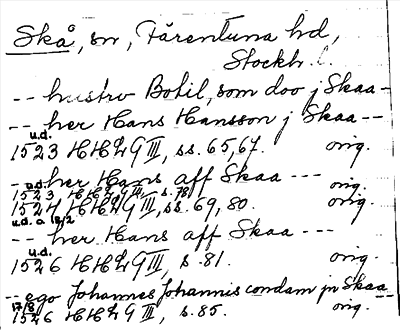 Skå, sn, Färentuna hd,
Stockh. l.
-- hustrv Botil, som doo j Skaa -
-- her Hans Hansson j Skaa --
u.d.
1523 HH2G III, ss. 65, 67. orig.
-- her Hans aff Skaa ---
u.d.
1523 HH2G III, s. 78 orig.
1524 HH2G III, ss. 69, 80. orig.
u.d. o 18/2
-- her Hans aff Skaa ---
u.d.
1526 HH2G III, s. 81. orig.
-- ego Johannes Johannis condam jn Skaa --
17/8
1526 HH2G III, s. 85. orig.